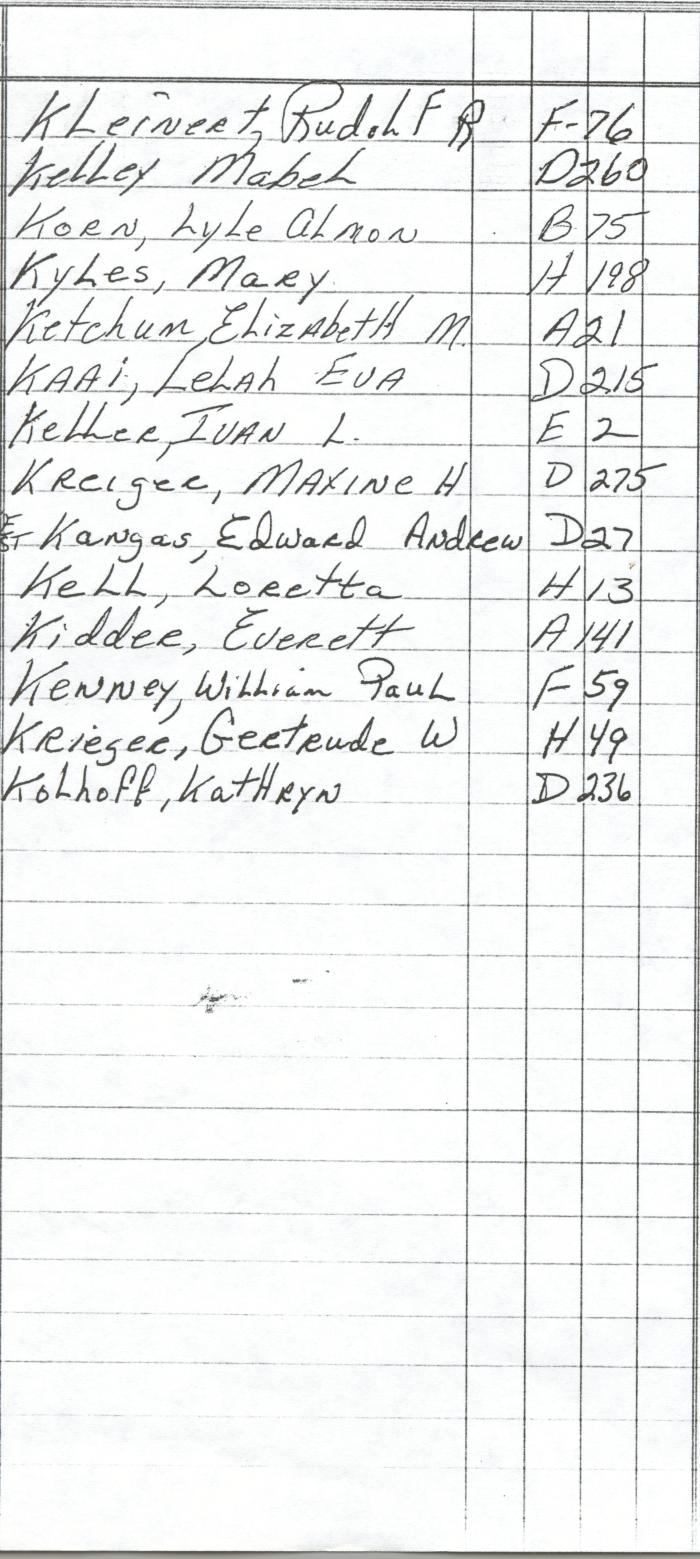 Kleinert, Rudolf R F-76
Kelley Mabel D260
Korn, Lyle Almon B 75
Kyles, Mary H 198
Ketchum, Elizabeth M. A21
KAAi, Lelah EVA D 215
Keller, IVAN L. E 2
Kreiger, MAXINE H D 275
EST Kangas, Edward Andrew D27
Kell, Loretta H 13
Kidder, Everett A 141
Kenney, William Paul F 59
Krieger, Gertrude W H 49
Kolhoff, Kathryn D 236